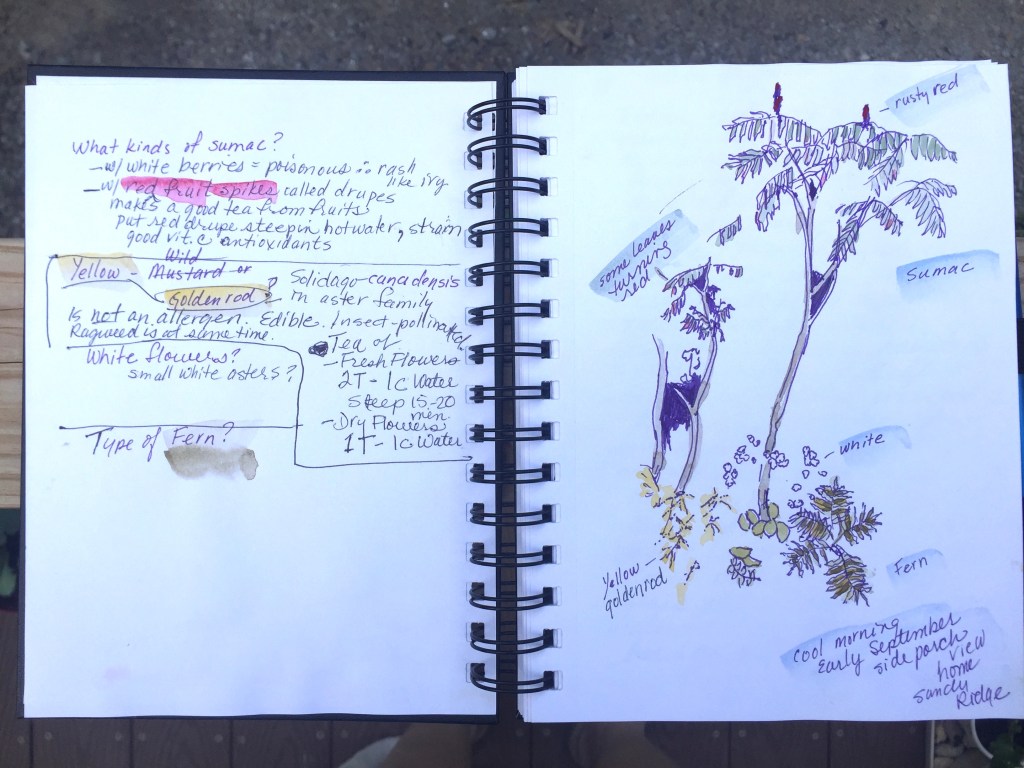 What kinds of sumac?
- w/ white berries = poisonous ∴ rash
like ivy
- w/ red fruit spikes called drupes
makes a good tea from fruits
Put red drupe steep in hot water, strain
good vit. C antioxidants
Yellow - Wild
Mustard or
Goldenrod?
Solidago-canadensis
in aster family
Is not an allergen. Edible. Insect-pollinated
Ragweed is at same time.
Tea of
- Fresh Flowers
2T - 1c Water
Steep 15-20
min.
- Dry Flowers
1T - 1c Water
White flowers?
small white asters?
Type of Fern?
rusty red
some leaves
turning
red
Sumac
white
Yellow
goldenrod
Fern
cool morning
Early September
side porch
view
home
Sandy
Ridge